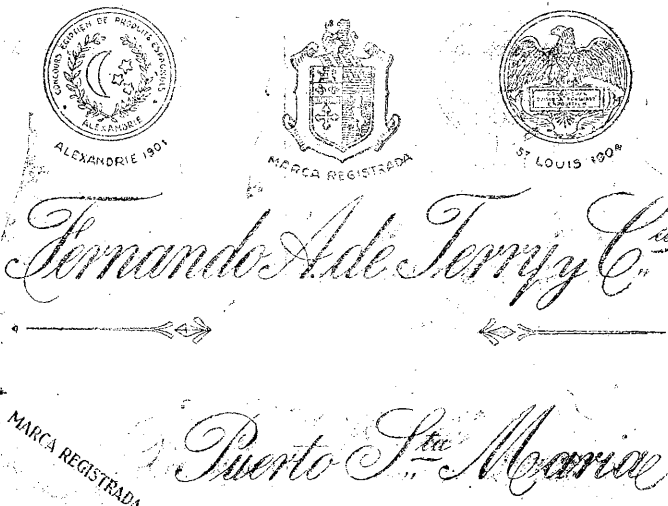 CONCOURS EGIPTIEN DE PRODUITS ESPAGNOLS
ALEXANDRIE
ALEXANDRIE 1901
MARCA REGISTRADA
ST LOUIS 1904
Fernando A. de Terry y Cía
Puerto Sta María
MARCA REGISTRADA